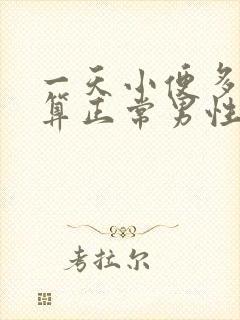 一天小便多
算正常男性
考拉尔